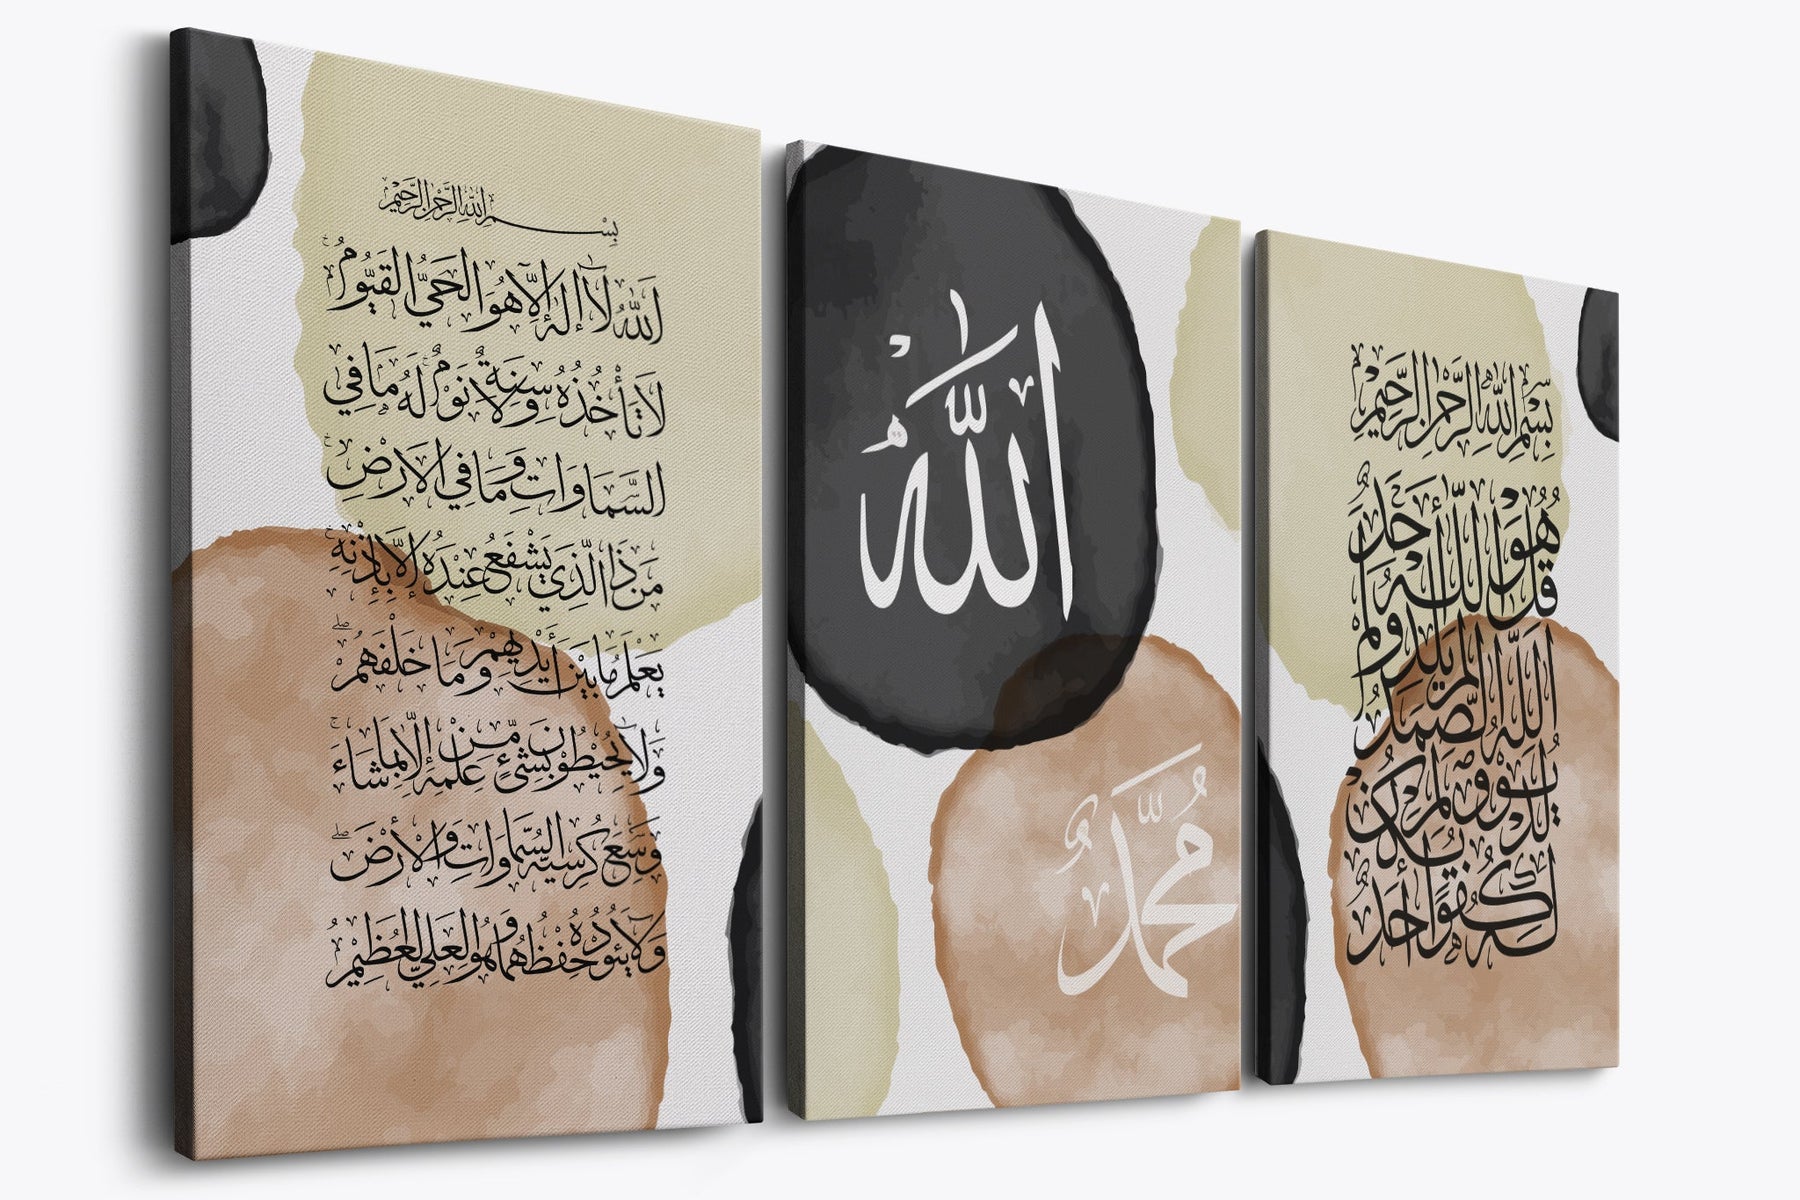 بِسْمِ اللهِ الرَّحْمٰنِ الرَّحِيْمِ
اَللّٰهُ لَآ اِلٰهَ اِلَّا هُوَ الْحَيُّ الْقَيُّوْمُ
لَا تَأْخُذُهٗ سِنَةٌ وَّلَا نَوْمٌ لَهٗ مَا فِي
السَّمَاوَاتِ وَمَا فِي الْاَرْضِ
مَنْ ذَا الَّذِيْ يَشْفَعُ عِنْدَهٗ اِلَّا بِاِذْنِهٖ
يَعْلَمُ مَا بَيْنَ أَيْدِيْهِمْ وَمَا خَلْفَهُمْ
وَلَا يُحِيْطُوْنَ بِشَيْءٍ مِّنْ عِلْمِهٖ اِلَّا بِمَا شَاءَ
وَسِعَ كُرْسِيُّهُ السَّمَاوَاتِ وَالْأَرْضَ
وَلَا يَئُوْدُهٗ حِفْظُهُمَا وَهُوَ الْعَلِيُّ الْعَظِيْمُ
اللّٰهُ
مُحَمَّدٌ
بِسْمِ اللهِ الرَّحْمٰنِ الرَّحِيْمِ
قُلْ هُوَ اللّٰهُ أَحَدٌ
اللّٰهُ الصَّمَدُ لَمْ يَلِدْ وَلَمْ
يُوْلَدْ وَلَمْ يَكُنْ
لَهٗ كُفُوًا أَحَدٌ